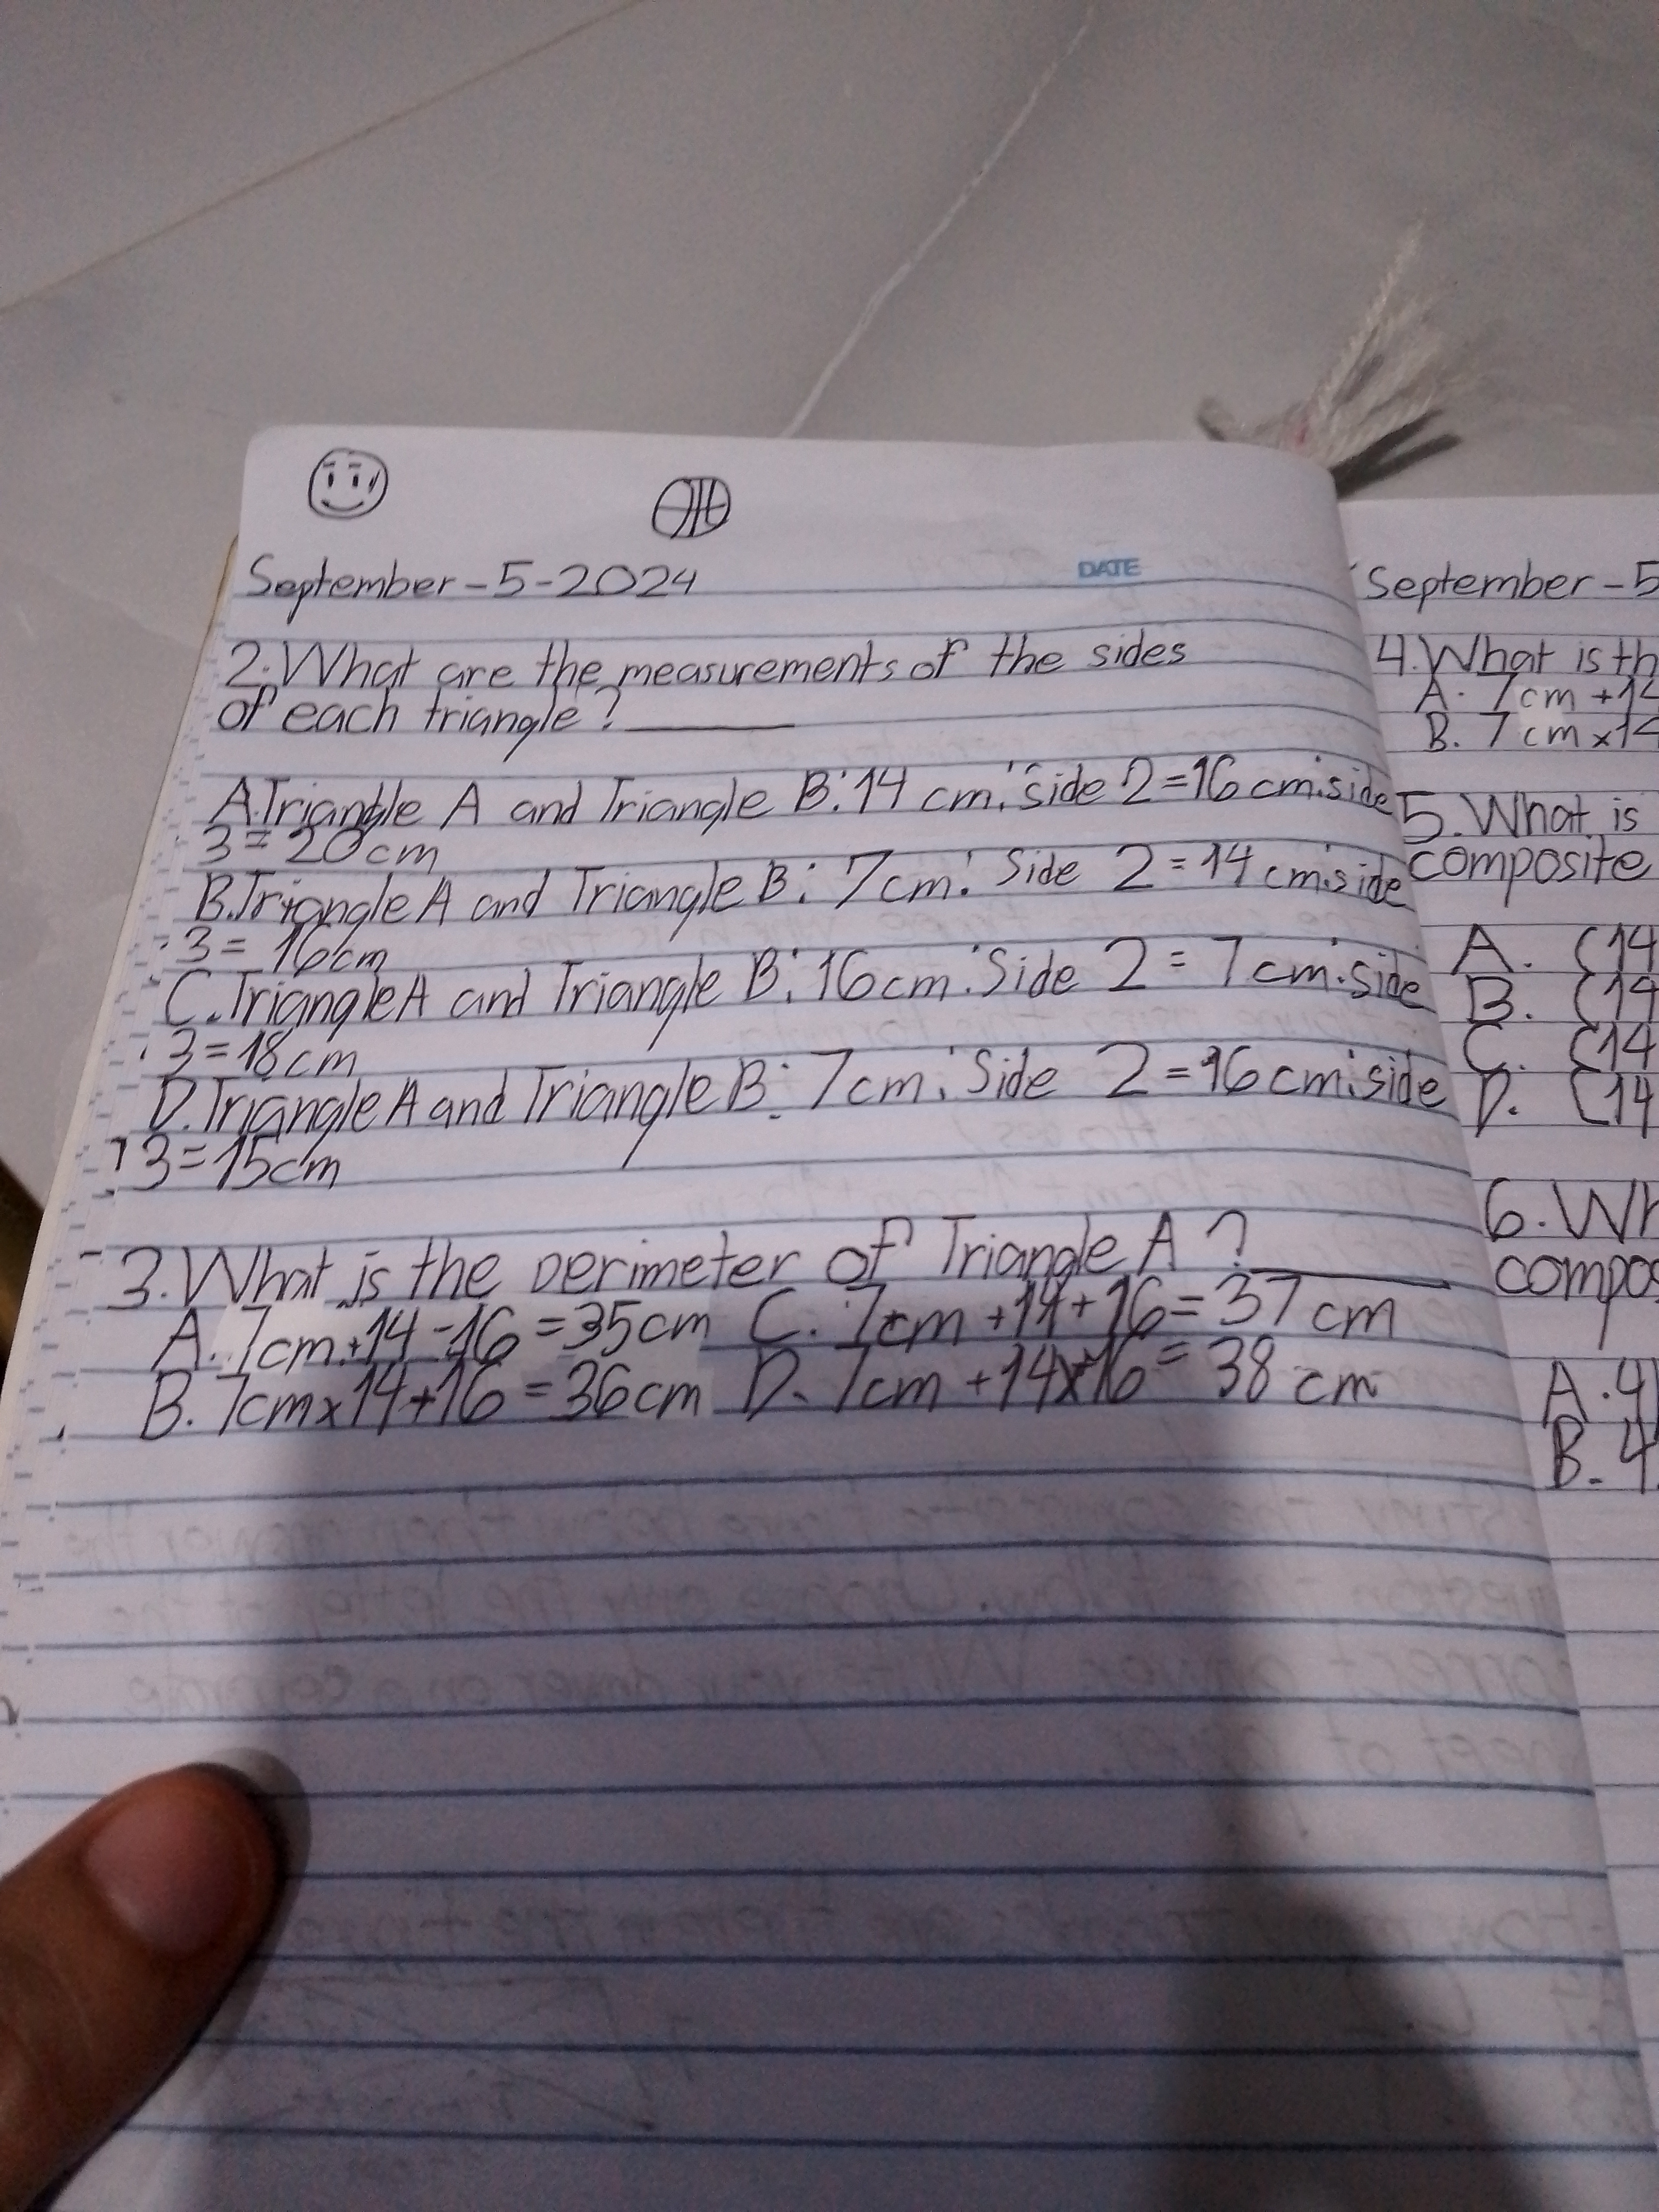 DATE
September-5-2024
2.What are the measurements of the sides
of each triangle? ________
A.Triangle A and Triangle B:14 cm: side 2=16cm:side
3=20cm
B.Triangle A and Triangle B: 7cm: Side 2=14cm:side
3=16cm
C.Triangle A and Triangle B:16cm:Side 2=7cm:side
3=18cm
D.Triangle A and Triangle B: 7cm: Side 2=16cm:side
3=15cm
3.What is the perimeter of Triangle A? ________
A. 7cm+14-16=35cm C. 7cm+14+16=37cm
B. 7cmx14+16=36cm D. 7cm+14x16=38cm
September-5
4.What is th
A. 7cm+14
B. 7cmx14
5.What is
composite
A. (14
B. (14
C. (14
D. (14
6.Wh
compos
A.4
B.4